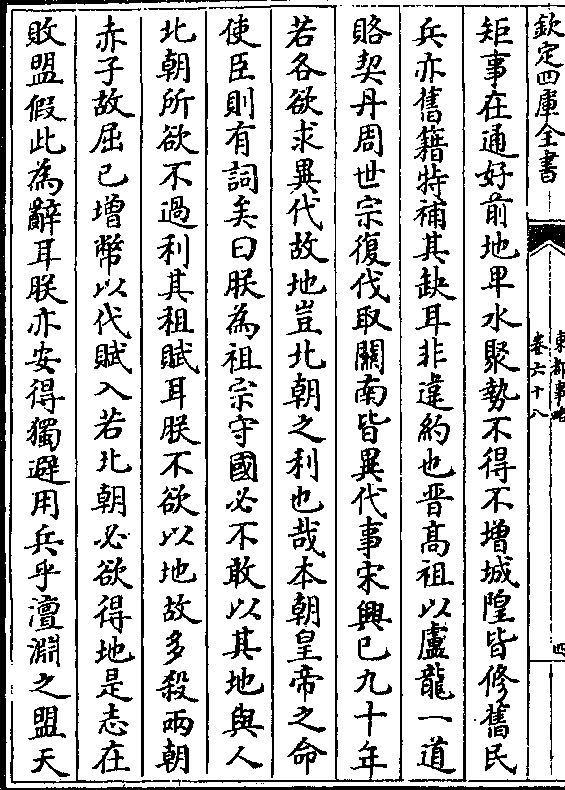 欽定四庫全書
東都事略
卷六十八
四
矩事在通好前地卑水聚勢不得不增城隍皆修舊民
兵亦舊籍特補其缺耳非違約也晉高祖以盧龍一道
賂契丹周世宗復伐取關南皆異代事宋興已九十年
若各欲求異代故地豈北朝之利也哉本朝皇帝之命
使臣則有詞矣曰朕為祖宗守國必不敢以其地與人
北朝所欲不過利其租賦耳朕不欲以地故多殺兩朝
赤子故屈已增幣以代賦入若北朝必欲得地是志在
敗盟假此為辭耳朕亦安得獨避用兵乎澶淵之盟天